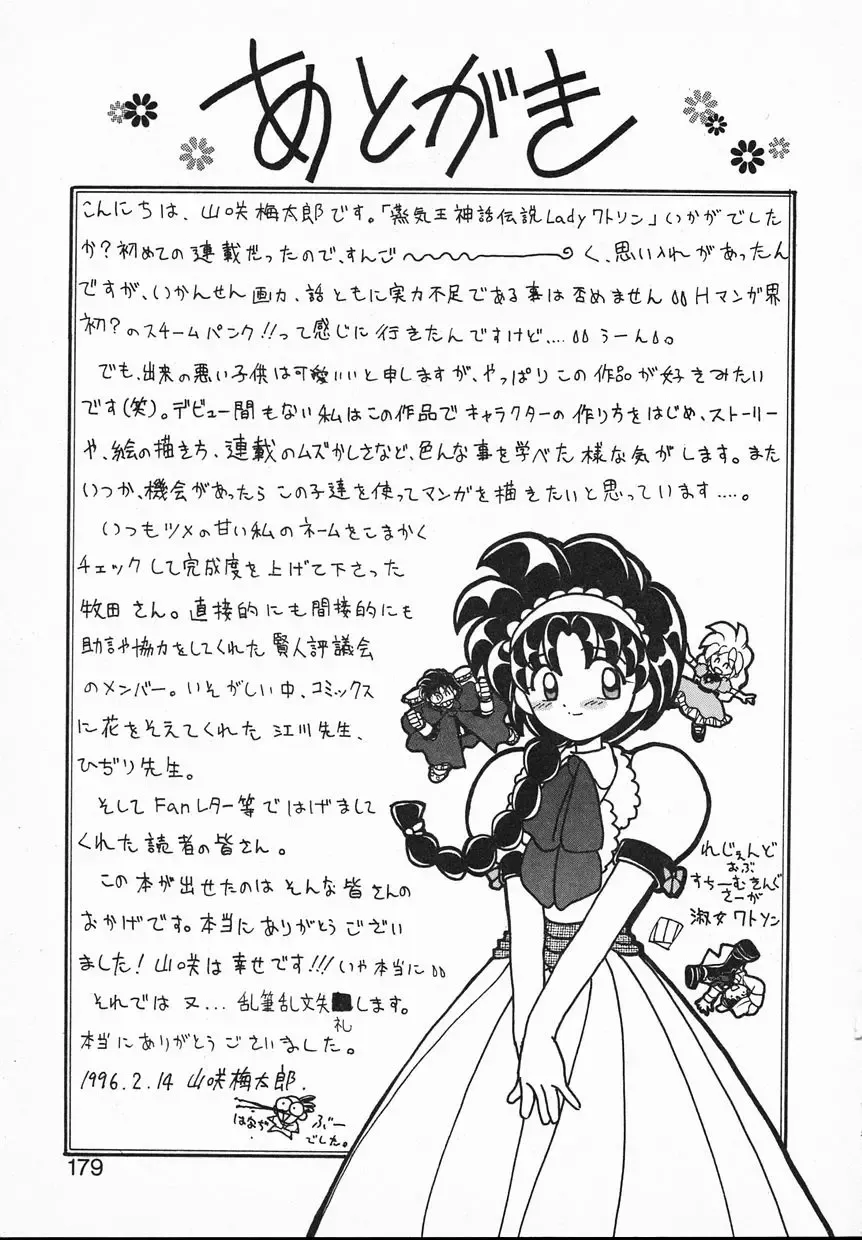 あとがき
こんにちは、山咲梅太郎です。「蒸気王神話伝説Ladyワトソン」いかがでした
か?初めての連載だったので、すんご〜〜〜〜く、思い入れがあったん
ですが、いかんせん画力、話ともに実力不足である事は否めません Hマンガ界
初?のスチームパンク!!って感じに行きたんですけど、... うーん。
でも、出来の悪い子供は可愛いいと申しますが、やっぱりこの作品が好きみたい
です(笑)。デビュー間もない私はこの作品でキャラクターの作り方をはじめ、ストーリー
や、絵の描き方、連載のムズかしさなど、色んな事を学べた様な気がします。また
いつか、機会があったらこの子達を使ってマンガを描きたいと思っています....。
いつもツメの甘い私のネームをこまかく
チェックして完成度を上げて下さった
牧田さん。直接的にも間接的にも
助言や協力をしてくれた賢人評議会
のメンバー。いそがしい中、コミックス
に花をそえてくれた江川先生、
ひぢり先生。
そしてFanレター等ではげまして
くれた読者の皆さん。
この本が出せたのはそんな皆さんの
おかげです。本当にありがとうござい
ました!山咲は幸せです!!!いや本当に
それでは又...乱筆乱文失礼します。
本当にありがとうございました。
1996.2.14 山咲梅太郎.
はなぢ
ぶー
でした。
れじぇんど
おぶ
すちーむきんぐ
さーが
淑女ワトソン
179